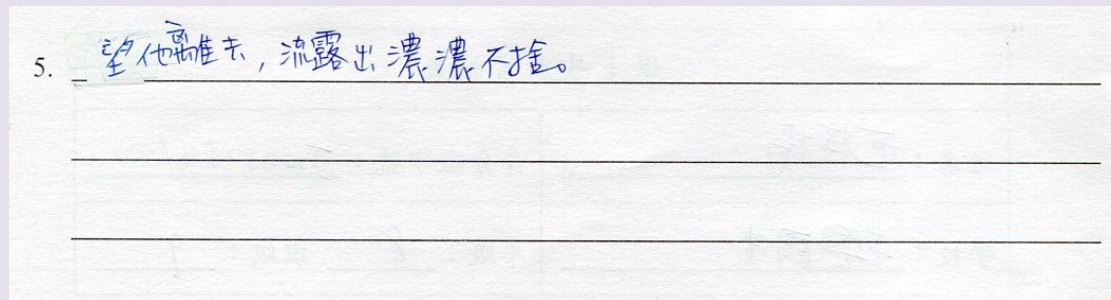 5. 望他離去，流露出濃濃不捨。